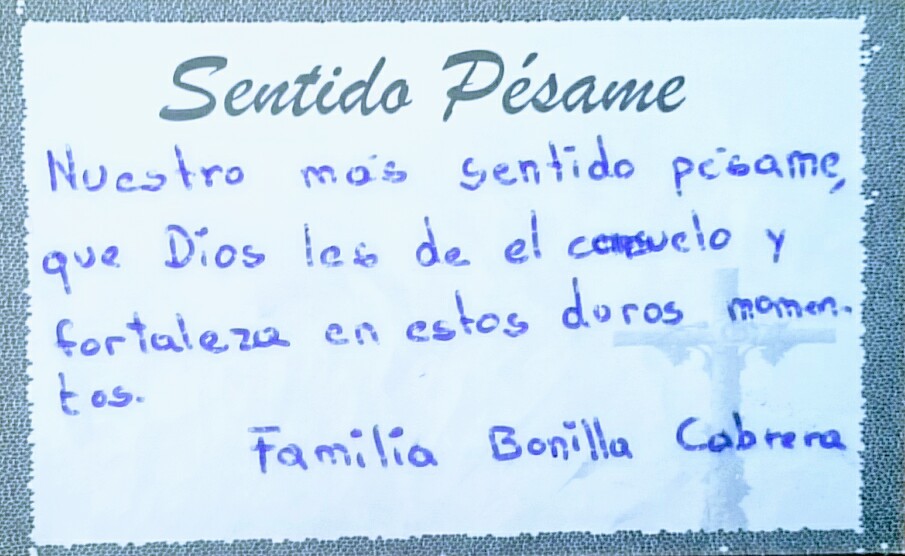 Sentido Pésame
Nuestro más sentido pésame,
que Dios les de el consuelo y
fortaleza en estos duros momen-
tos.
Familia Bonilla Cabrera